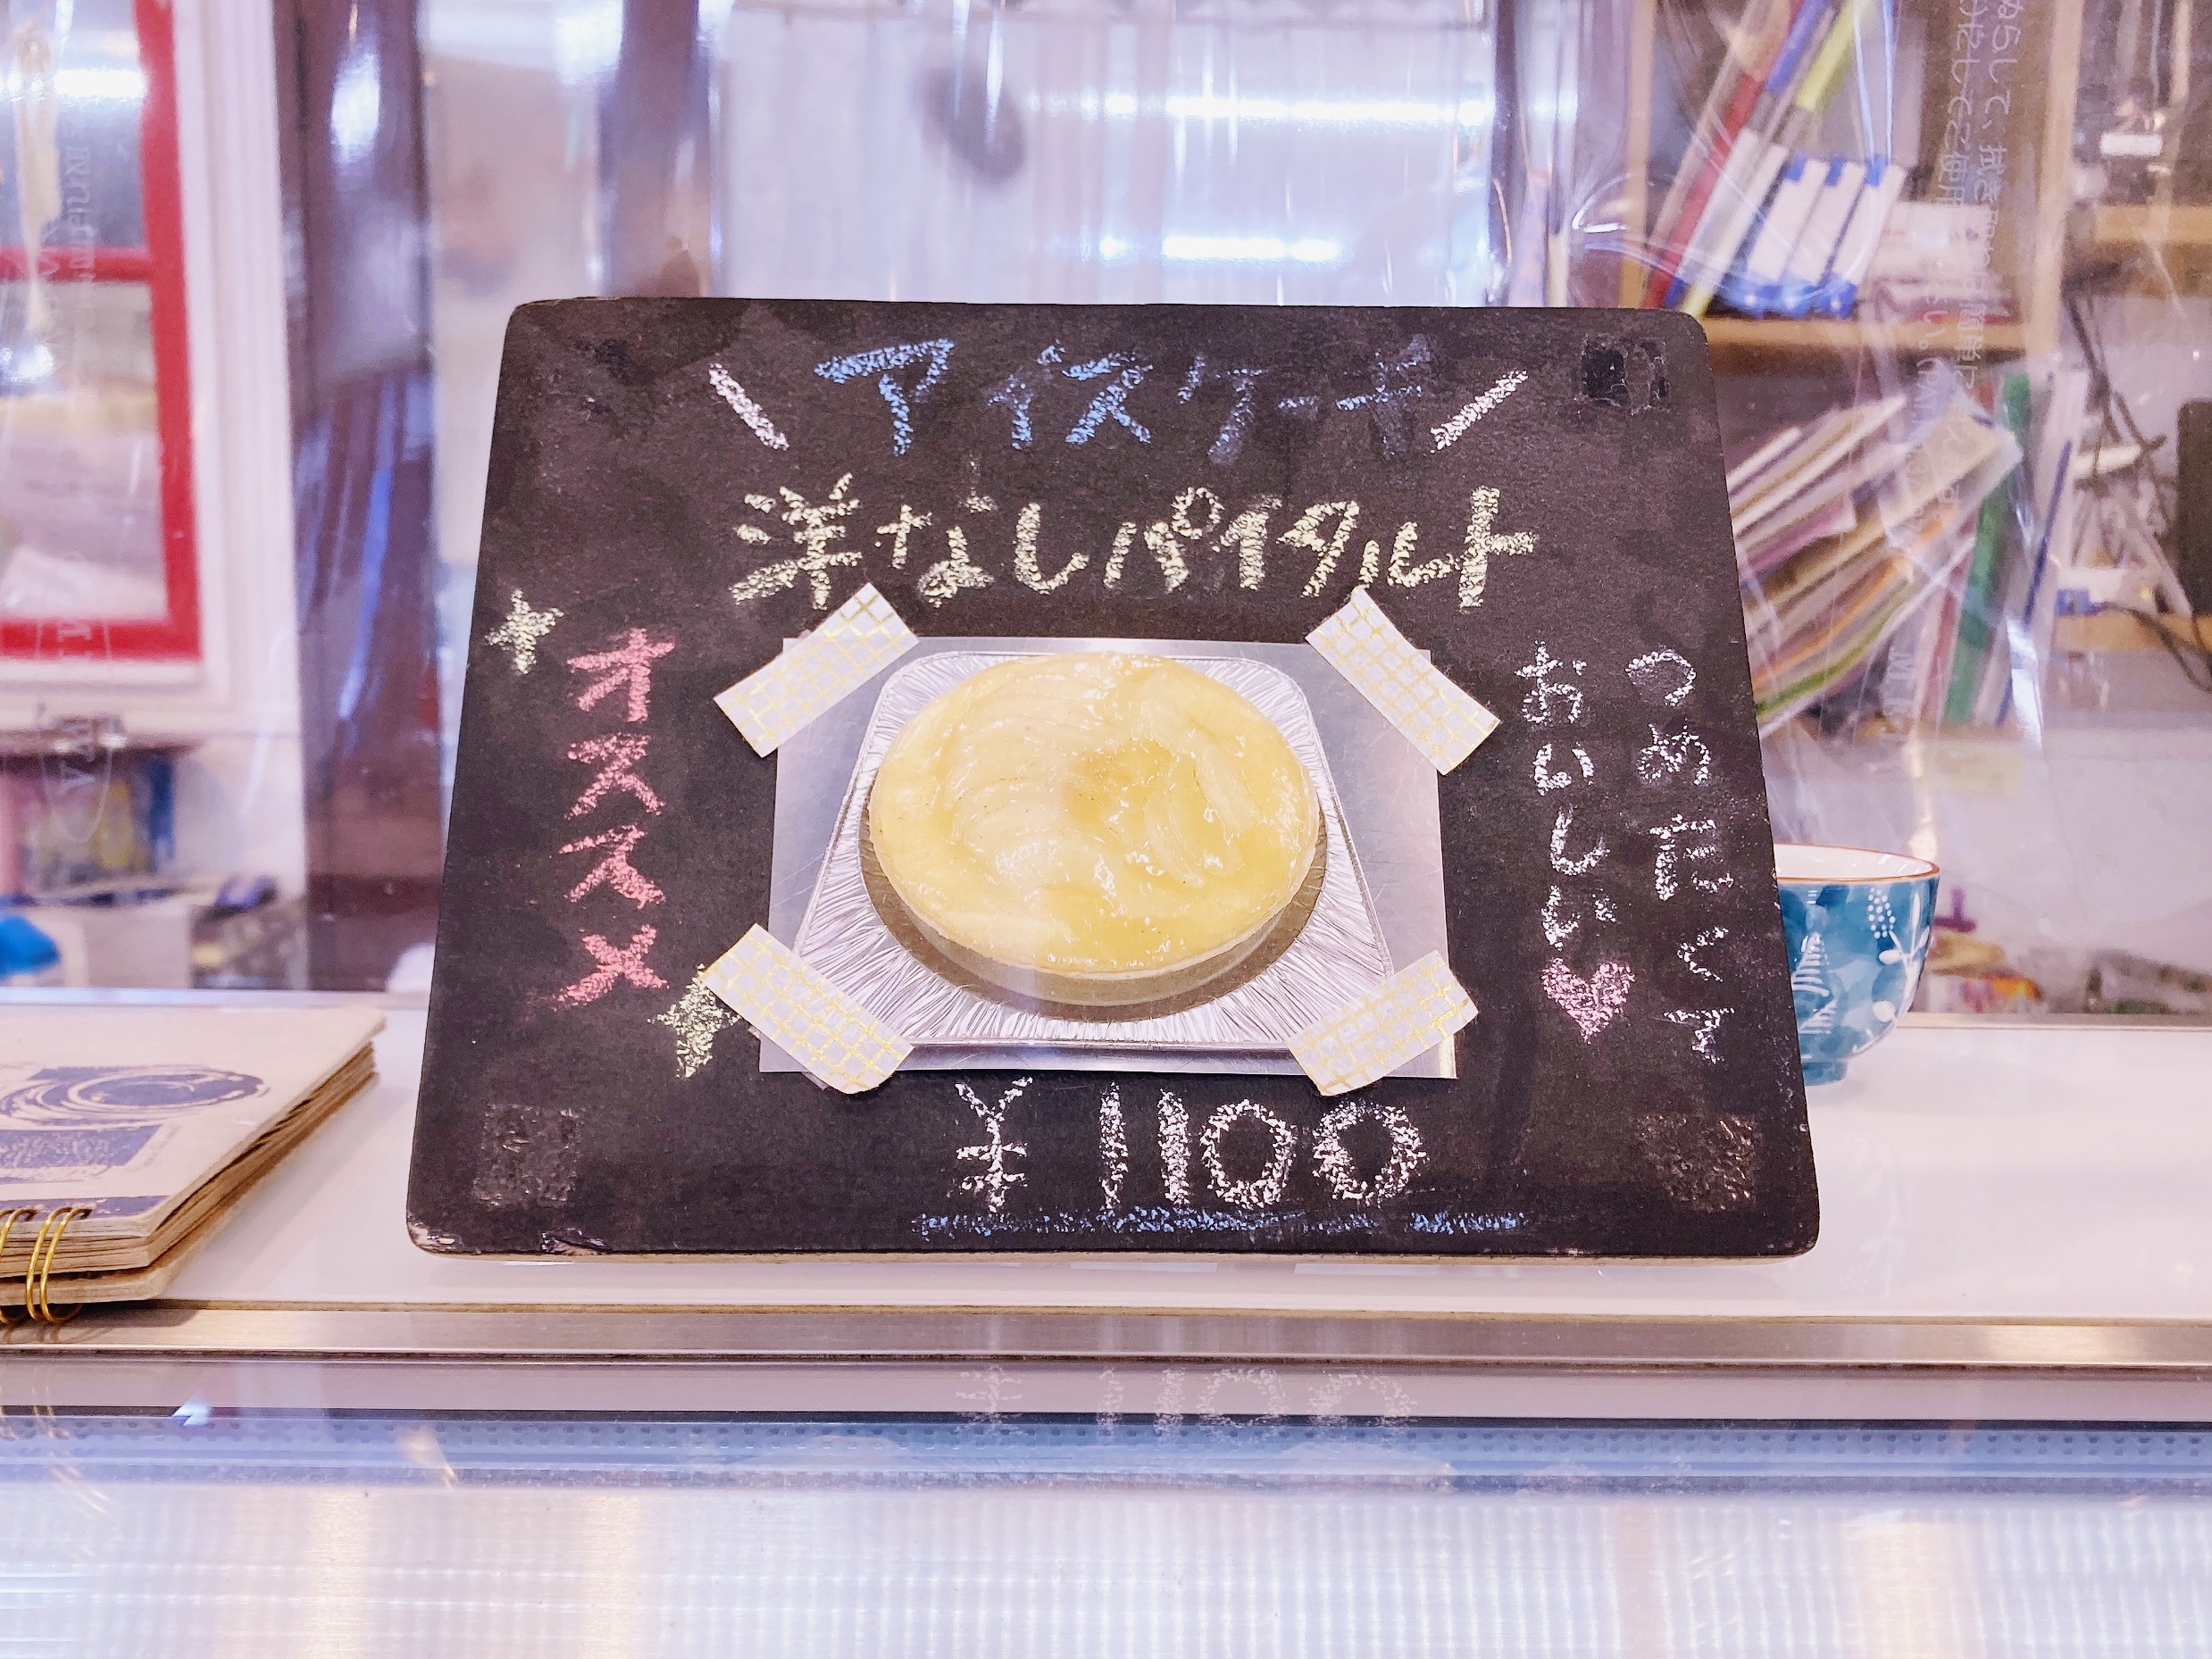 アイスケーキ
洋なしパイタルト
オススメ
つめたくて
おいしい
¥1100